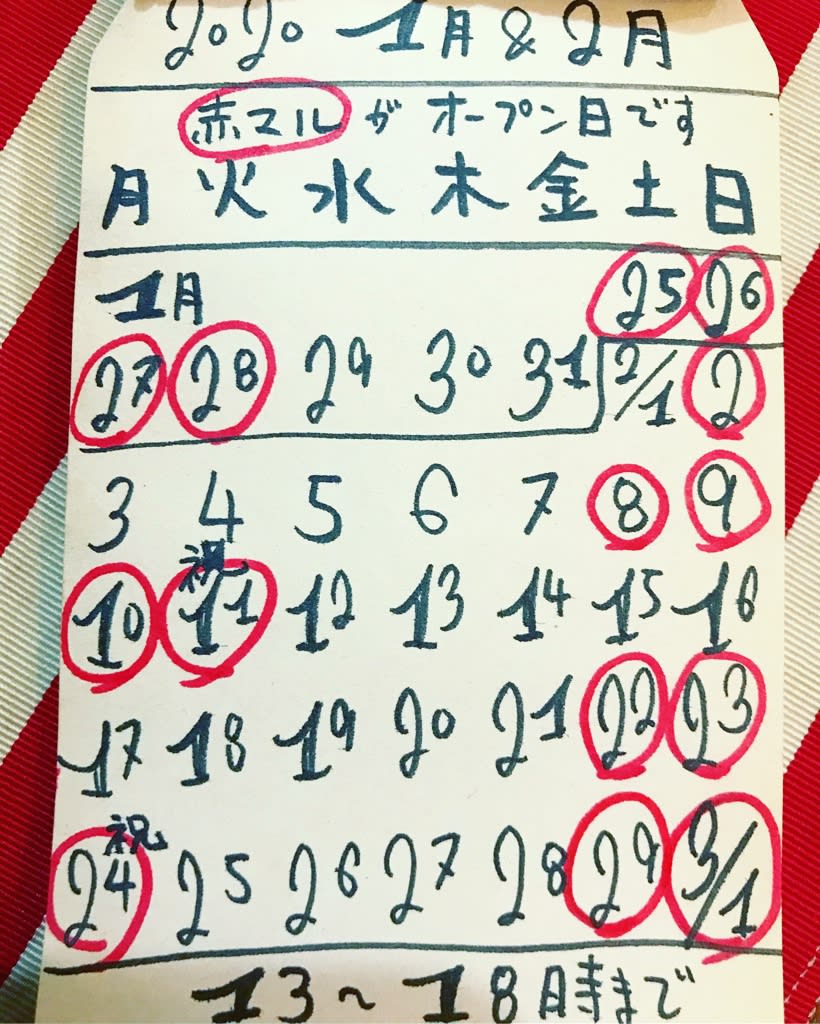 2020 1月 & 2月
赤マル が オープン日です
月 火 水 木 金 土 日
1月 25 26
27 28 29 30 31 2/1 2
3 4 5 6 7 8 9
祝
10 11 12 13 14 15 16
17 18 19 20 21 22 23
祝
24 25 26 27 28 29 3/1
13〜18時まで